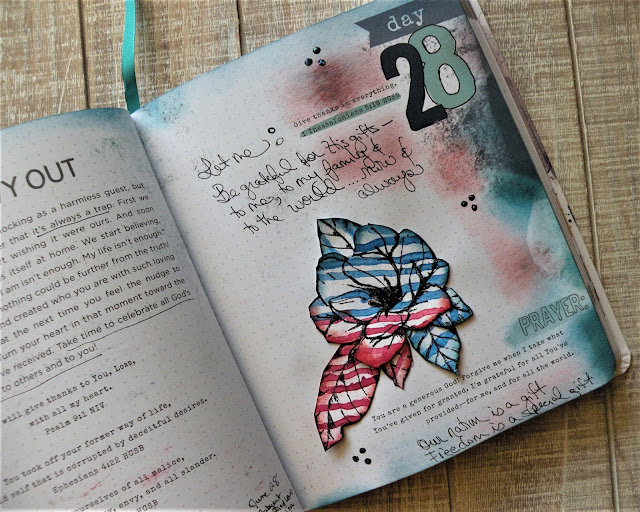 Y OUT
ocking as a harmless guest, but
that it's always a trap. First we
t wishing it were ours. And soon
s itself at home. We start believing,
I am isn't enough. My life isn't enough."
othing could be further from the truth!
nd created who you are with such loving
at the next time you feel the nudge to
urn your heart in that moment toward the
ve received. Take time to celebrate all God's
to others and to you!
will give thanks to You, LORD,
with all my heart.
Psalm 9:1 NIV
You took off your former way of life,
d self that is corrupted by deceitful desires.
Ephesians 4:22 HCSB
ourselves of all malice,
envy, and all slander.
HCSB
June 28
day
28
Give thanks in everything.
1 Thessalonians 5:18 HCSB
Let me
Be grateful for His gifts-
to me, to my family &
to the world... Now &
always
PRAYER:
You are a generous God! Forgive me when I take what
You've given for granted. I'm grateful for all You've
provided—for me, and for all the world.
Our nation is a gift
Freedom is a special gift